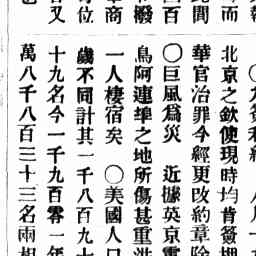 北京之欽使現時均肯簽押
華官治罪今經更改約章除
〇巨風爲災　近據英京電
鳥阿連埠之地所傷甚重洪
一人棲宿矣　〇美國人口
歲不同計其一千八百九十
十九名今一千九百零一年
萬八千八百三十三名兩相